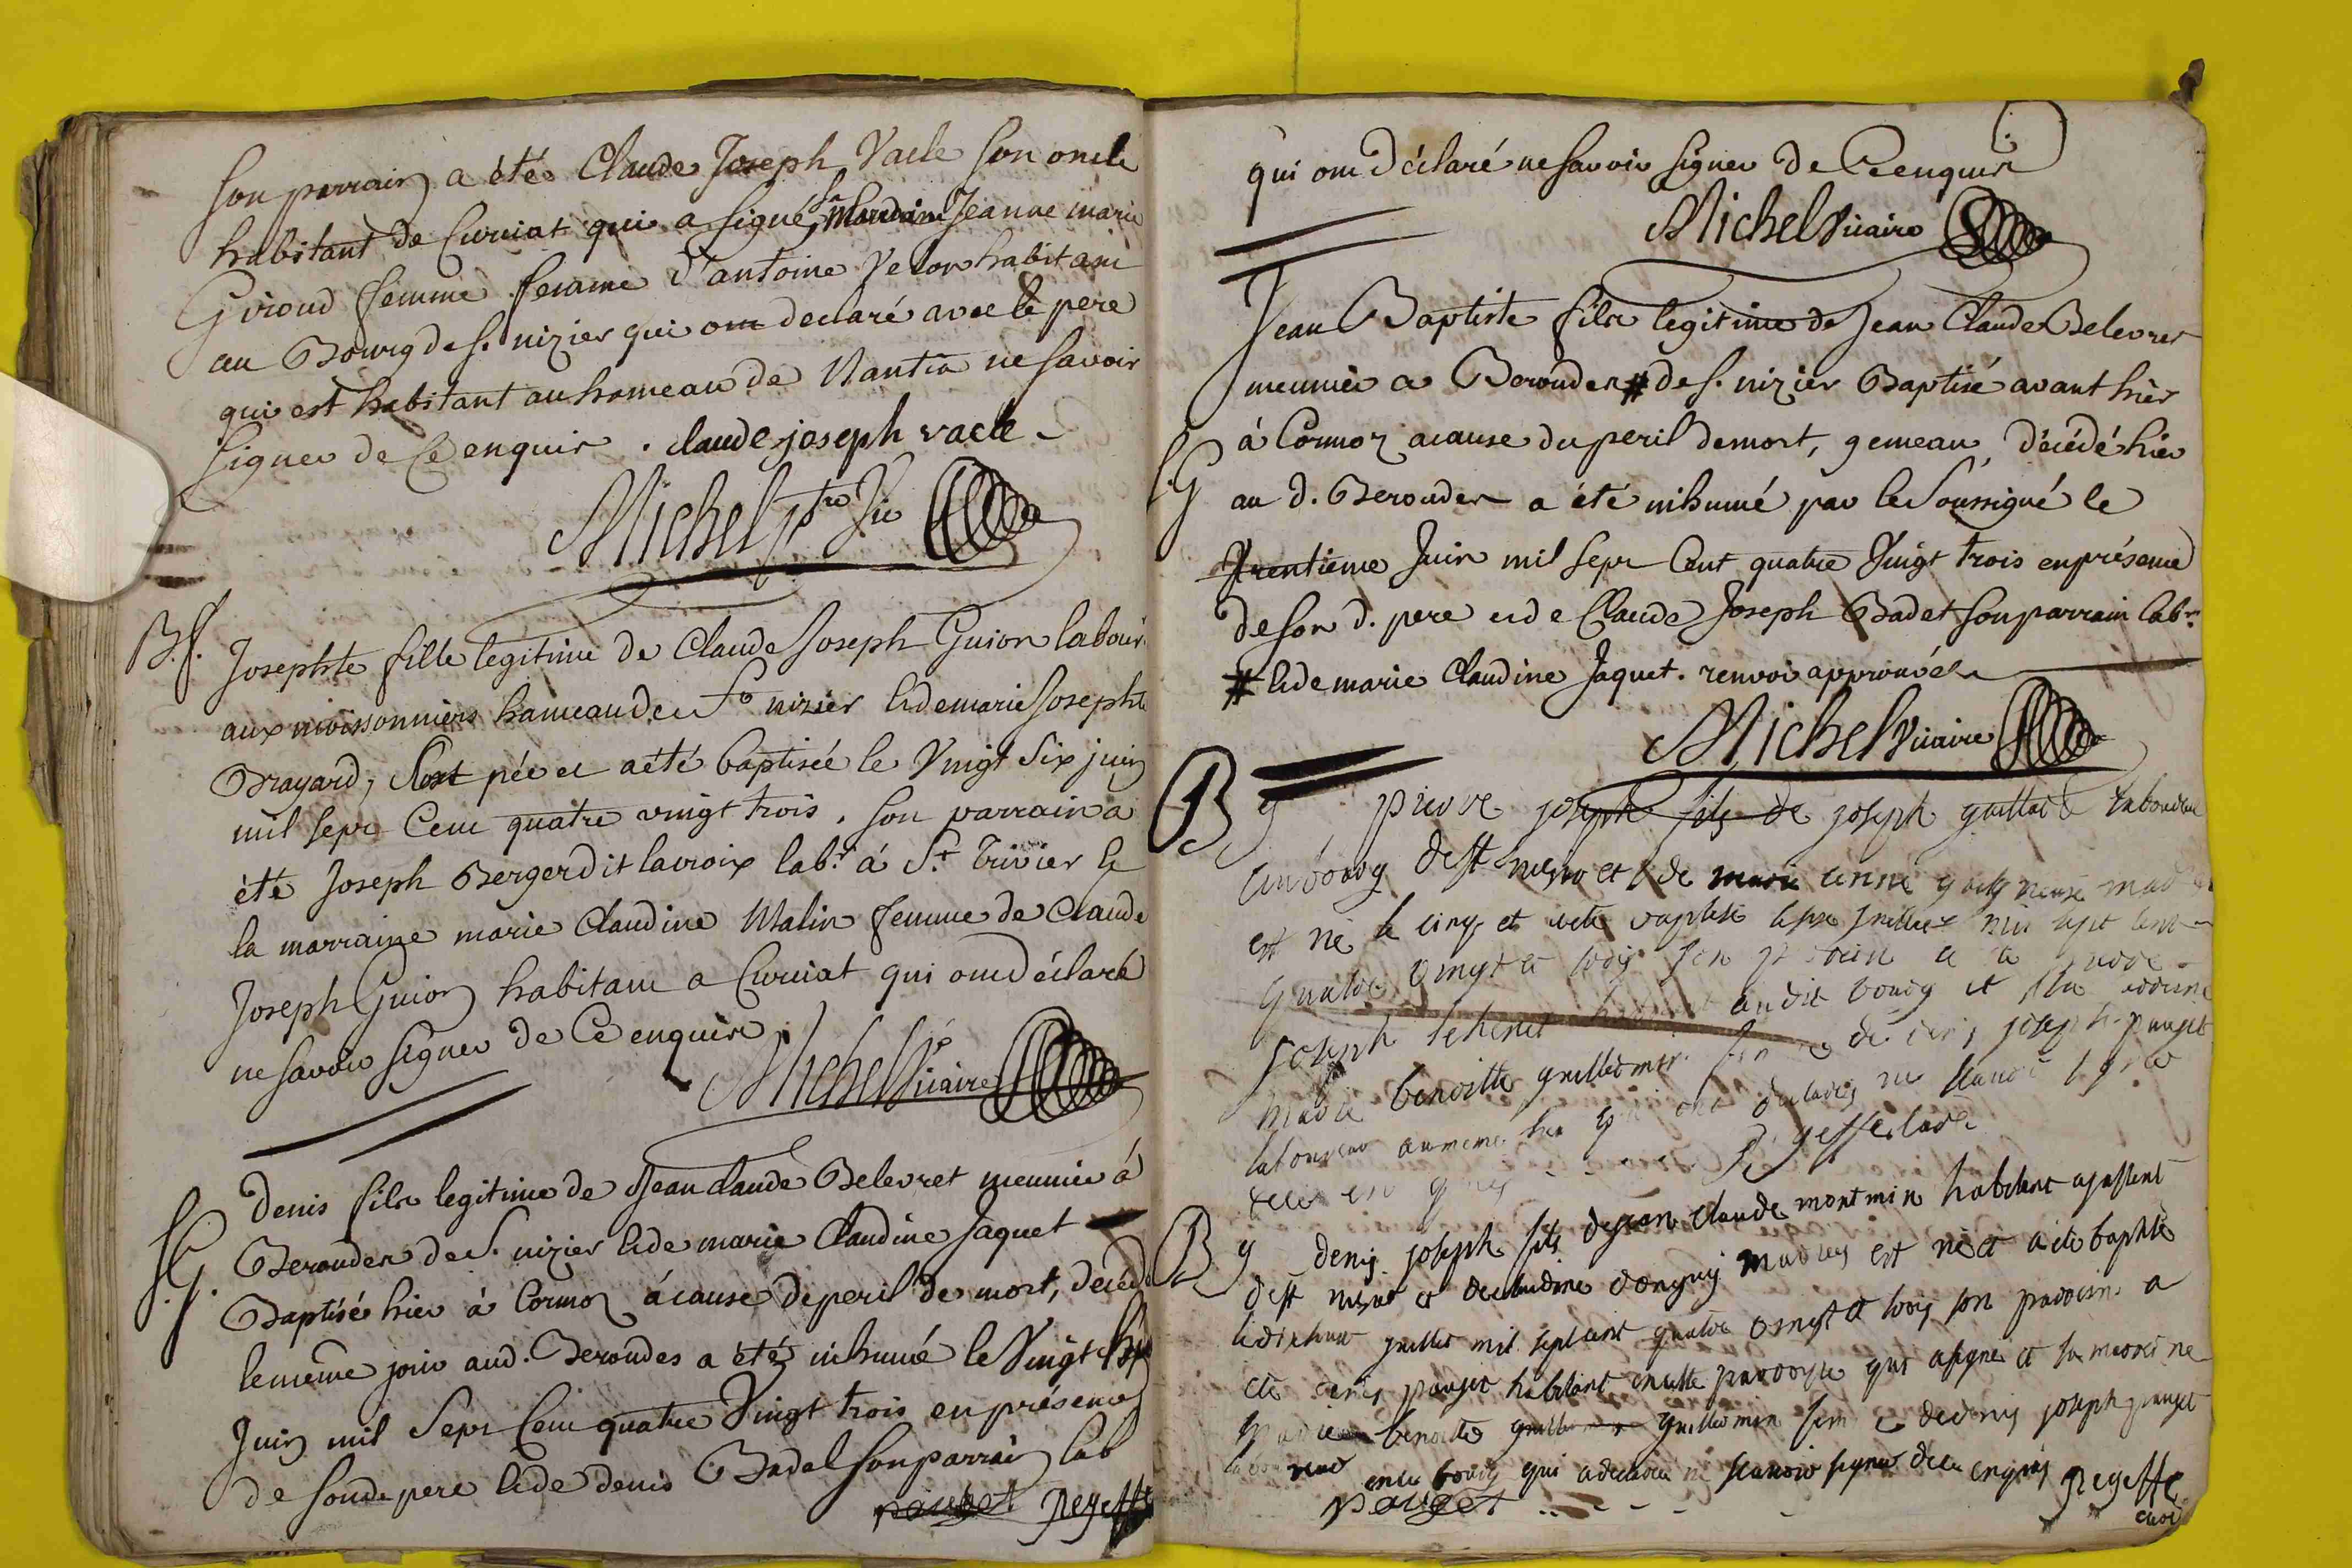 Son parrain a été Claude Joseph Vacle son oncle
habitant de Curciat qui a signé, Sa Marraine Jeanne marie
Giroud femme femme d'antoine Velon habitant
au Bourg de s. nizier qui ont declaré avec le pere
qui est habitant au hameau de Nantia ne savoir
signer de Ce enquis . claude joseph vacle
Michel ptre Vic
B.f. Josephte fille legitime de Claude Joseph Guion labour
aux moissonniers hameau de St nizier et de marie Josephte
Brayard, Est née et a été baptisée le Vingt Six juin
mil sept Cent quatre vingt trois . son parrain a
été Joseph Berger dit lacroix labr. à St. Trivier et
la marraine marie Claudine Malin femme de Claude
Joseph Guion habitant a Curciat qui ont déclaré
ne savoir signer de Ce enquis
Michel Vicaire
S.G. Denis fils legitime de Jean Claude Belevret meunier à
Beroudes de S. nizier et de marie Claudine Jaquet
Baptisé hier à Cormoz à cause de peril de mort, décédé
le même jour aud. Beroudes a été inhumé le Vingt
Juin mil Sept Cent quatre Vingt trois en présence
de son d. pere et de denis Badel son parrain lab
pauget
qui ont déclaré ne savoir signer de Ce enquis
Michel Vicaire
Jean Baptiste fils legitime de Jean Claude Belevret
meunier a Beroudes # de s. nizier Baptisé avant hier
S.G à Cormoz a cause du peril de mort, gemeau, décédé hier
au d. Beroudes a été inhumé par le Soussigné le
Trentieme Juin mil Sept Cent quatre Vingt trois en présence
de son d. pere et de Claude Joseph Badet son parrain labr.
# et de marie Claudine Jaquet. renvoi approuvé
Michel Vicaire
B g pierre joseph fils de joseph laboureur
au bourg de st et de marie anne
est né le cinq et a ete baptisé le six juillet mil sept cent
quatre vingt et trois son parrain a
joseph audit bourg et sa
marie benoitte guillermin de denis joseph pauget
laboureur au meme lieu qui ont declarés ne scavoir signer
B g denis joseph fils de jean claude montmin habitant
de st nizier et de claudine mariés est né et a ete baptisé
le dix huit juillet mil sept cent quatre vingt et trois son parrain a
ete denis pauget habitant en cette parroisse qui a signé et sa marraine
marie benoitte guillermin femme de denis joseph pauget
en ce bourg qui a declaré ne scavoir signer de ce enquis
pauget